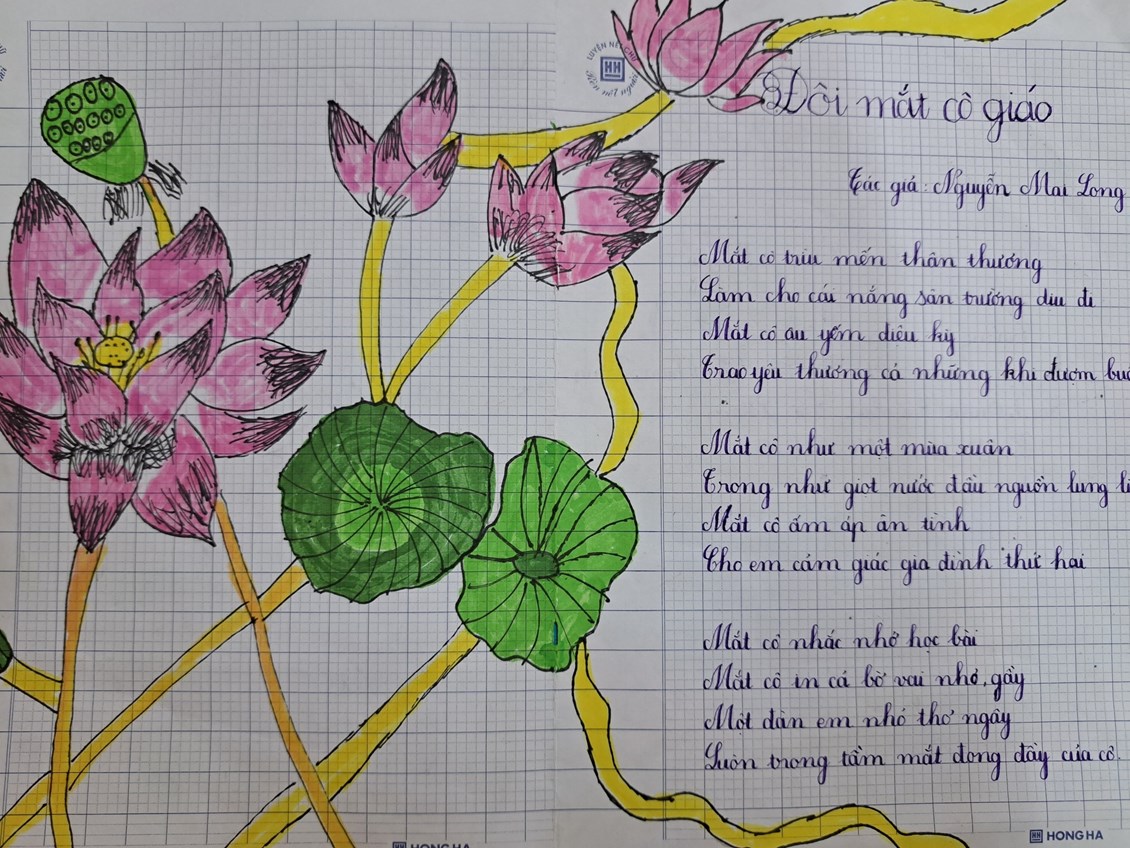 LUYỆN NÉT CHỮ
Rèn nết người
Đôi mắt cô giáo
Tác giả: Nguyễn Mai Long
Mắt cô trìu mến thân thương
Làm cho cái nắng sân trường dịu đi
Mắt cô âu yếm diệu kỳ
Trao yêu thương cả những khi đượm
Mắt cô như một mùa xuân
Trong như giọt nước đầu nguồn lung
Mắt cô ấm áp ân tình
Cho em cảm giác gia đình thứ hai
Mắt cô nhắc nhở học bài
Mắt cô in cả bờ vai nhỏ, gầy
Một đàn em nhỏ thơ ngây
Luôn trong tầm mắt đong đầy của cô.
HONG HA
HONG HA